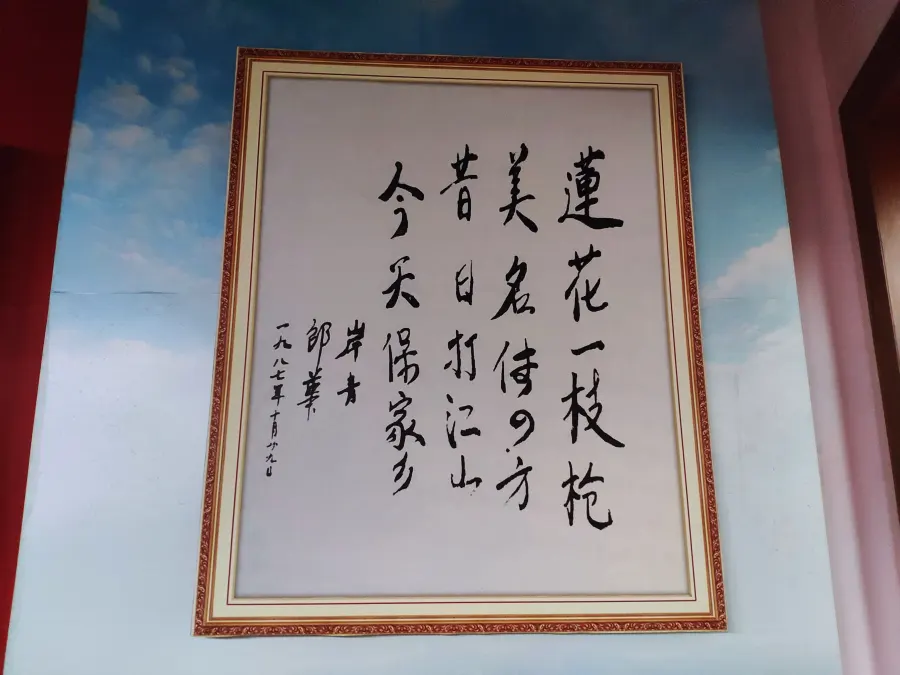 蓮花一枝枪
美名传四方
昔日打江山
今天保家乡
岸青
邵華
一九八七年十月廿九日